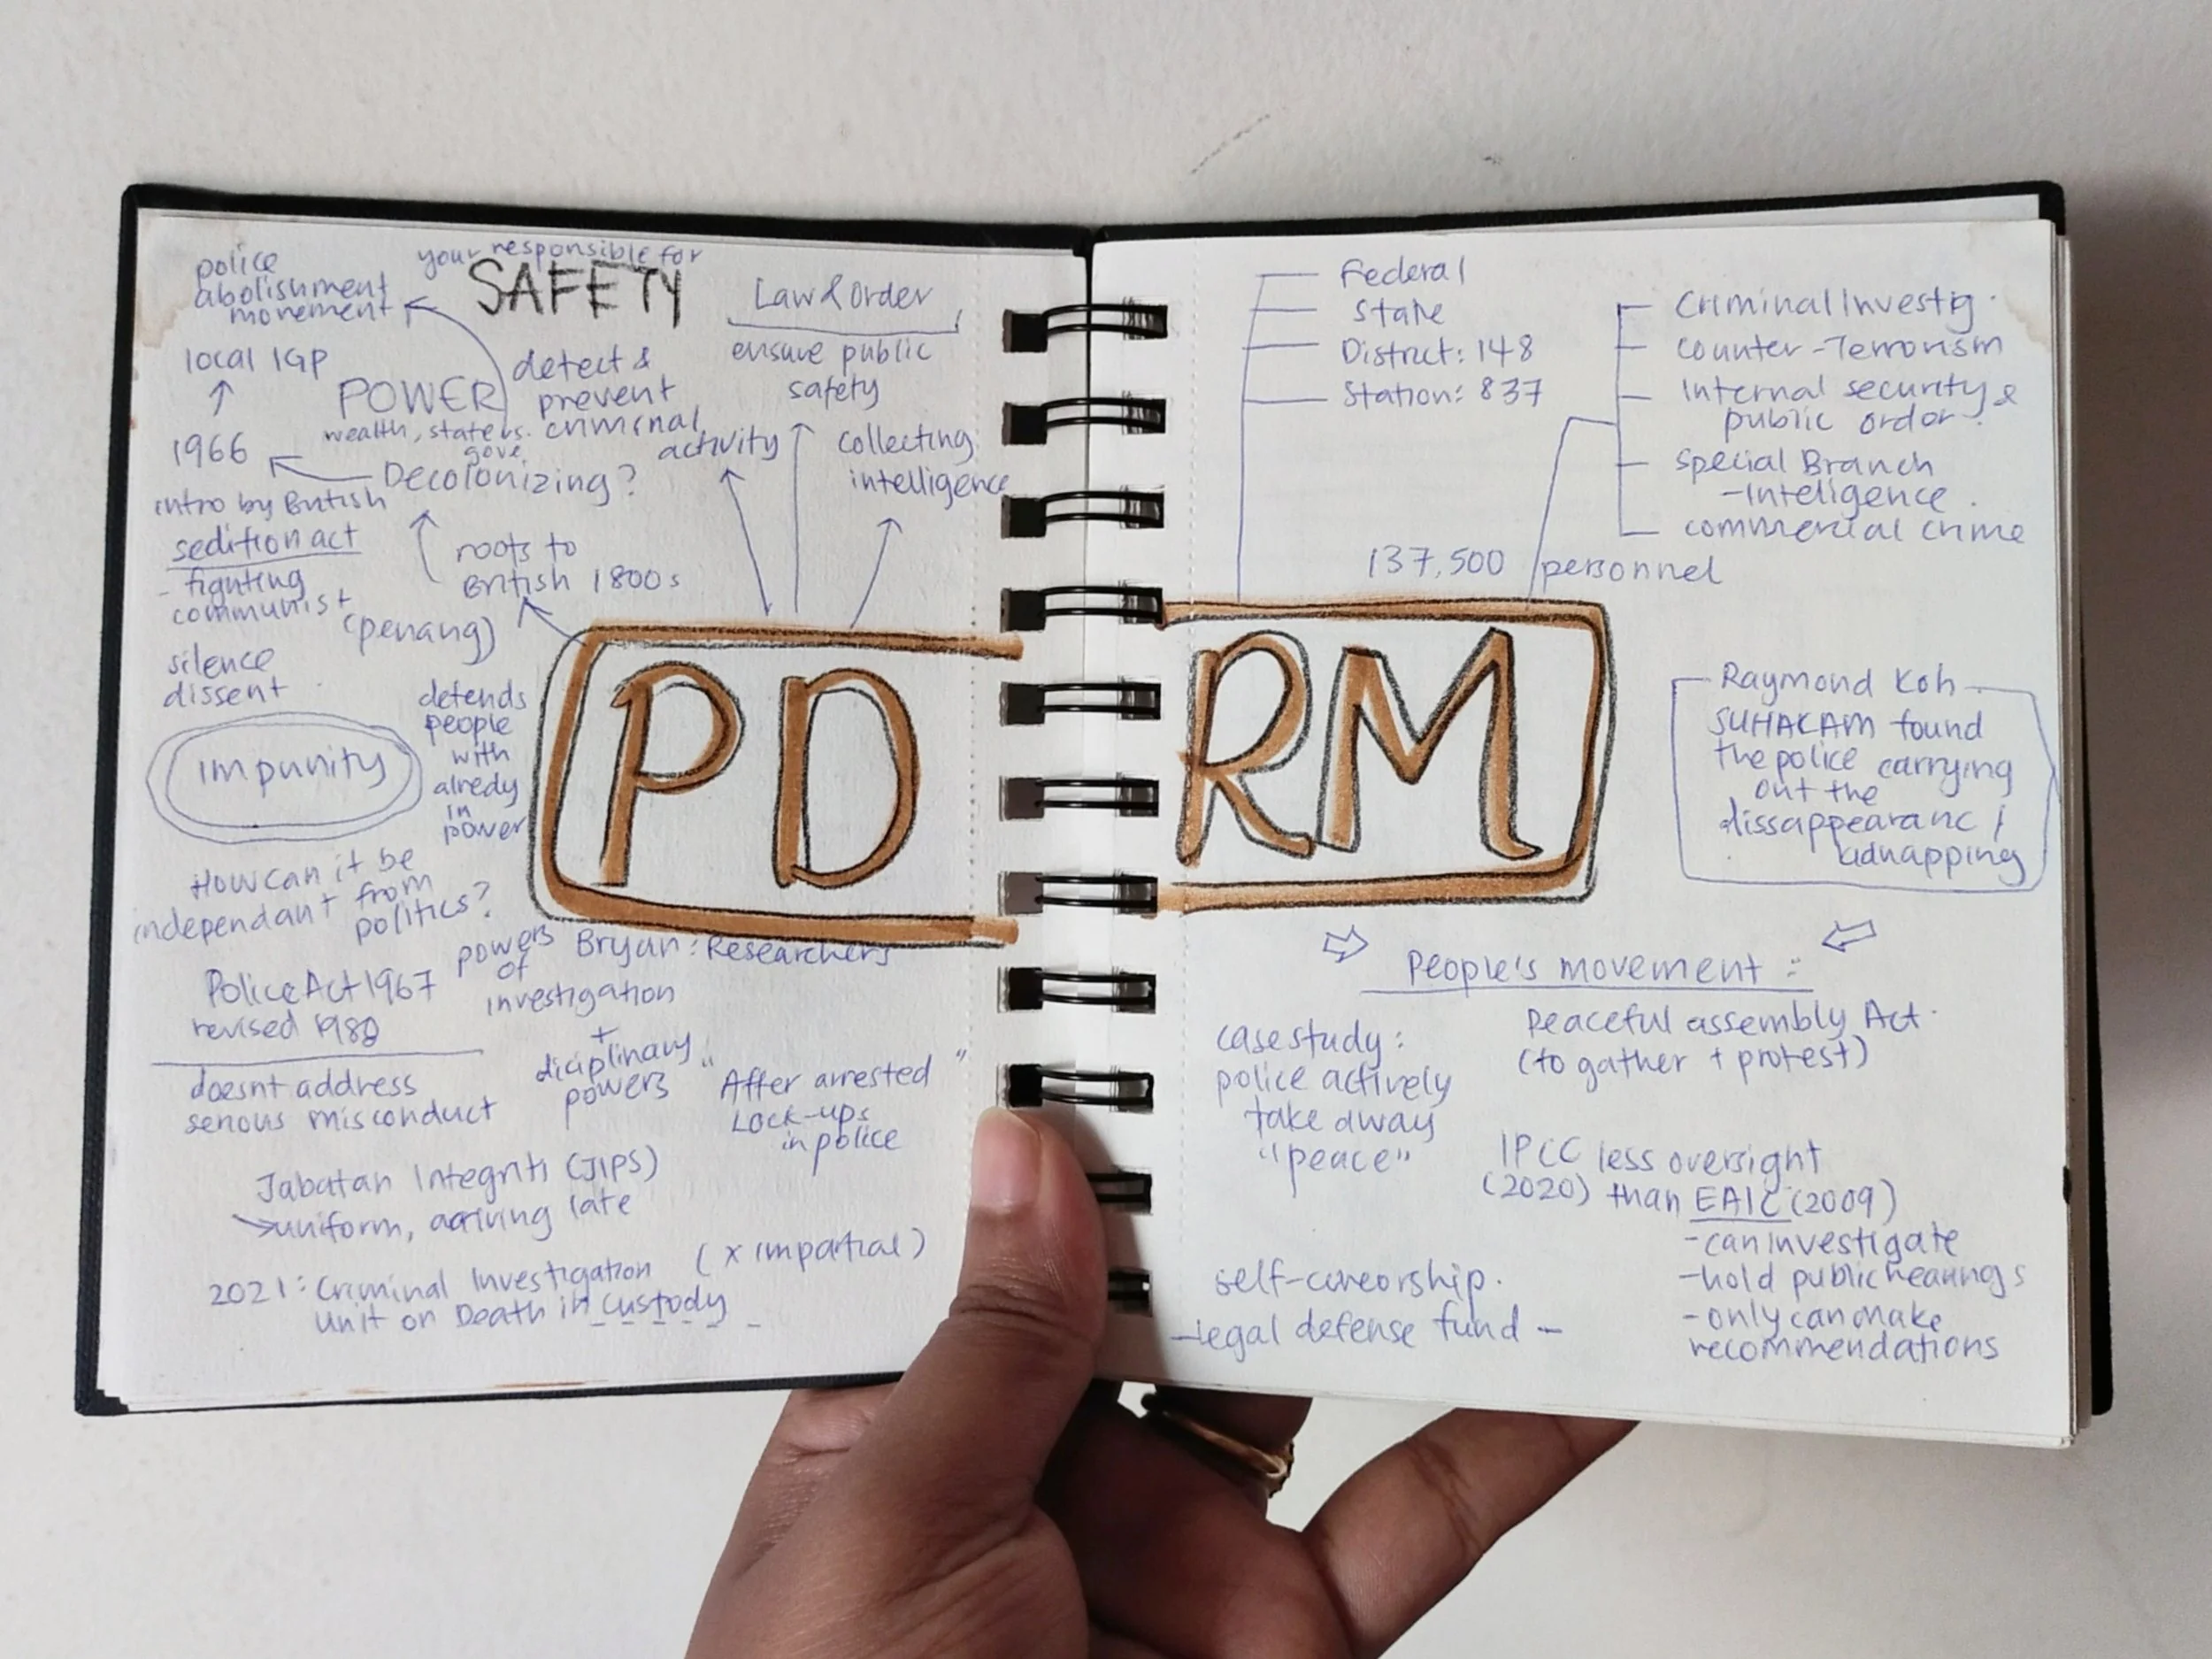 police
abolishment
movement
your responsible for
SAFETY
Law & Order
ensure public
safety
local IGP
POWER
wealth, state vs.
gove
detect &
prevent
criminal
activity
collecting
intelligence
1966
Decolonizing?
intro by British
sedition act
- fighting
communist
(penang)
roots to
British 1800s
silence
dissent
impunity
defends
people
with
alredy
in
power
PD
How can it be
independant from
politics?
Police Act 1967
revised 1988
doesnt address
serious misconduct
powers
of
investigation
+
diciplinary
powers
Bryan: Researchers
"After arrested"
Lock-ups
in police
Jabatan Integriti (JIPS)
uniform, arriving late
2021: Criminal Investigation
Unit on Death in custody
(x impartial)
Federal
State
District: 148
Station: 837
Criminal Investig.
Counter-Terrorism
Internal security &
public order
Special Branch
- Inteligence
commercial crime
137,500 personnel
RM
Raymond Koh
SUHAKAM found
the police carrying
out the
dissappearanc /
kidnapping
People's movement:
case study:
police actively
take away
"peace"
Peaceful assembly Act.
(to gather + protest)
IPCC less oversight
(2020) than EAIC (2009)
- can investigate
- hold public hearings
- only can make
recommendations
- legal defense fund -